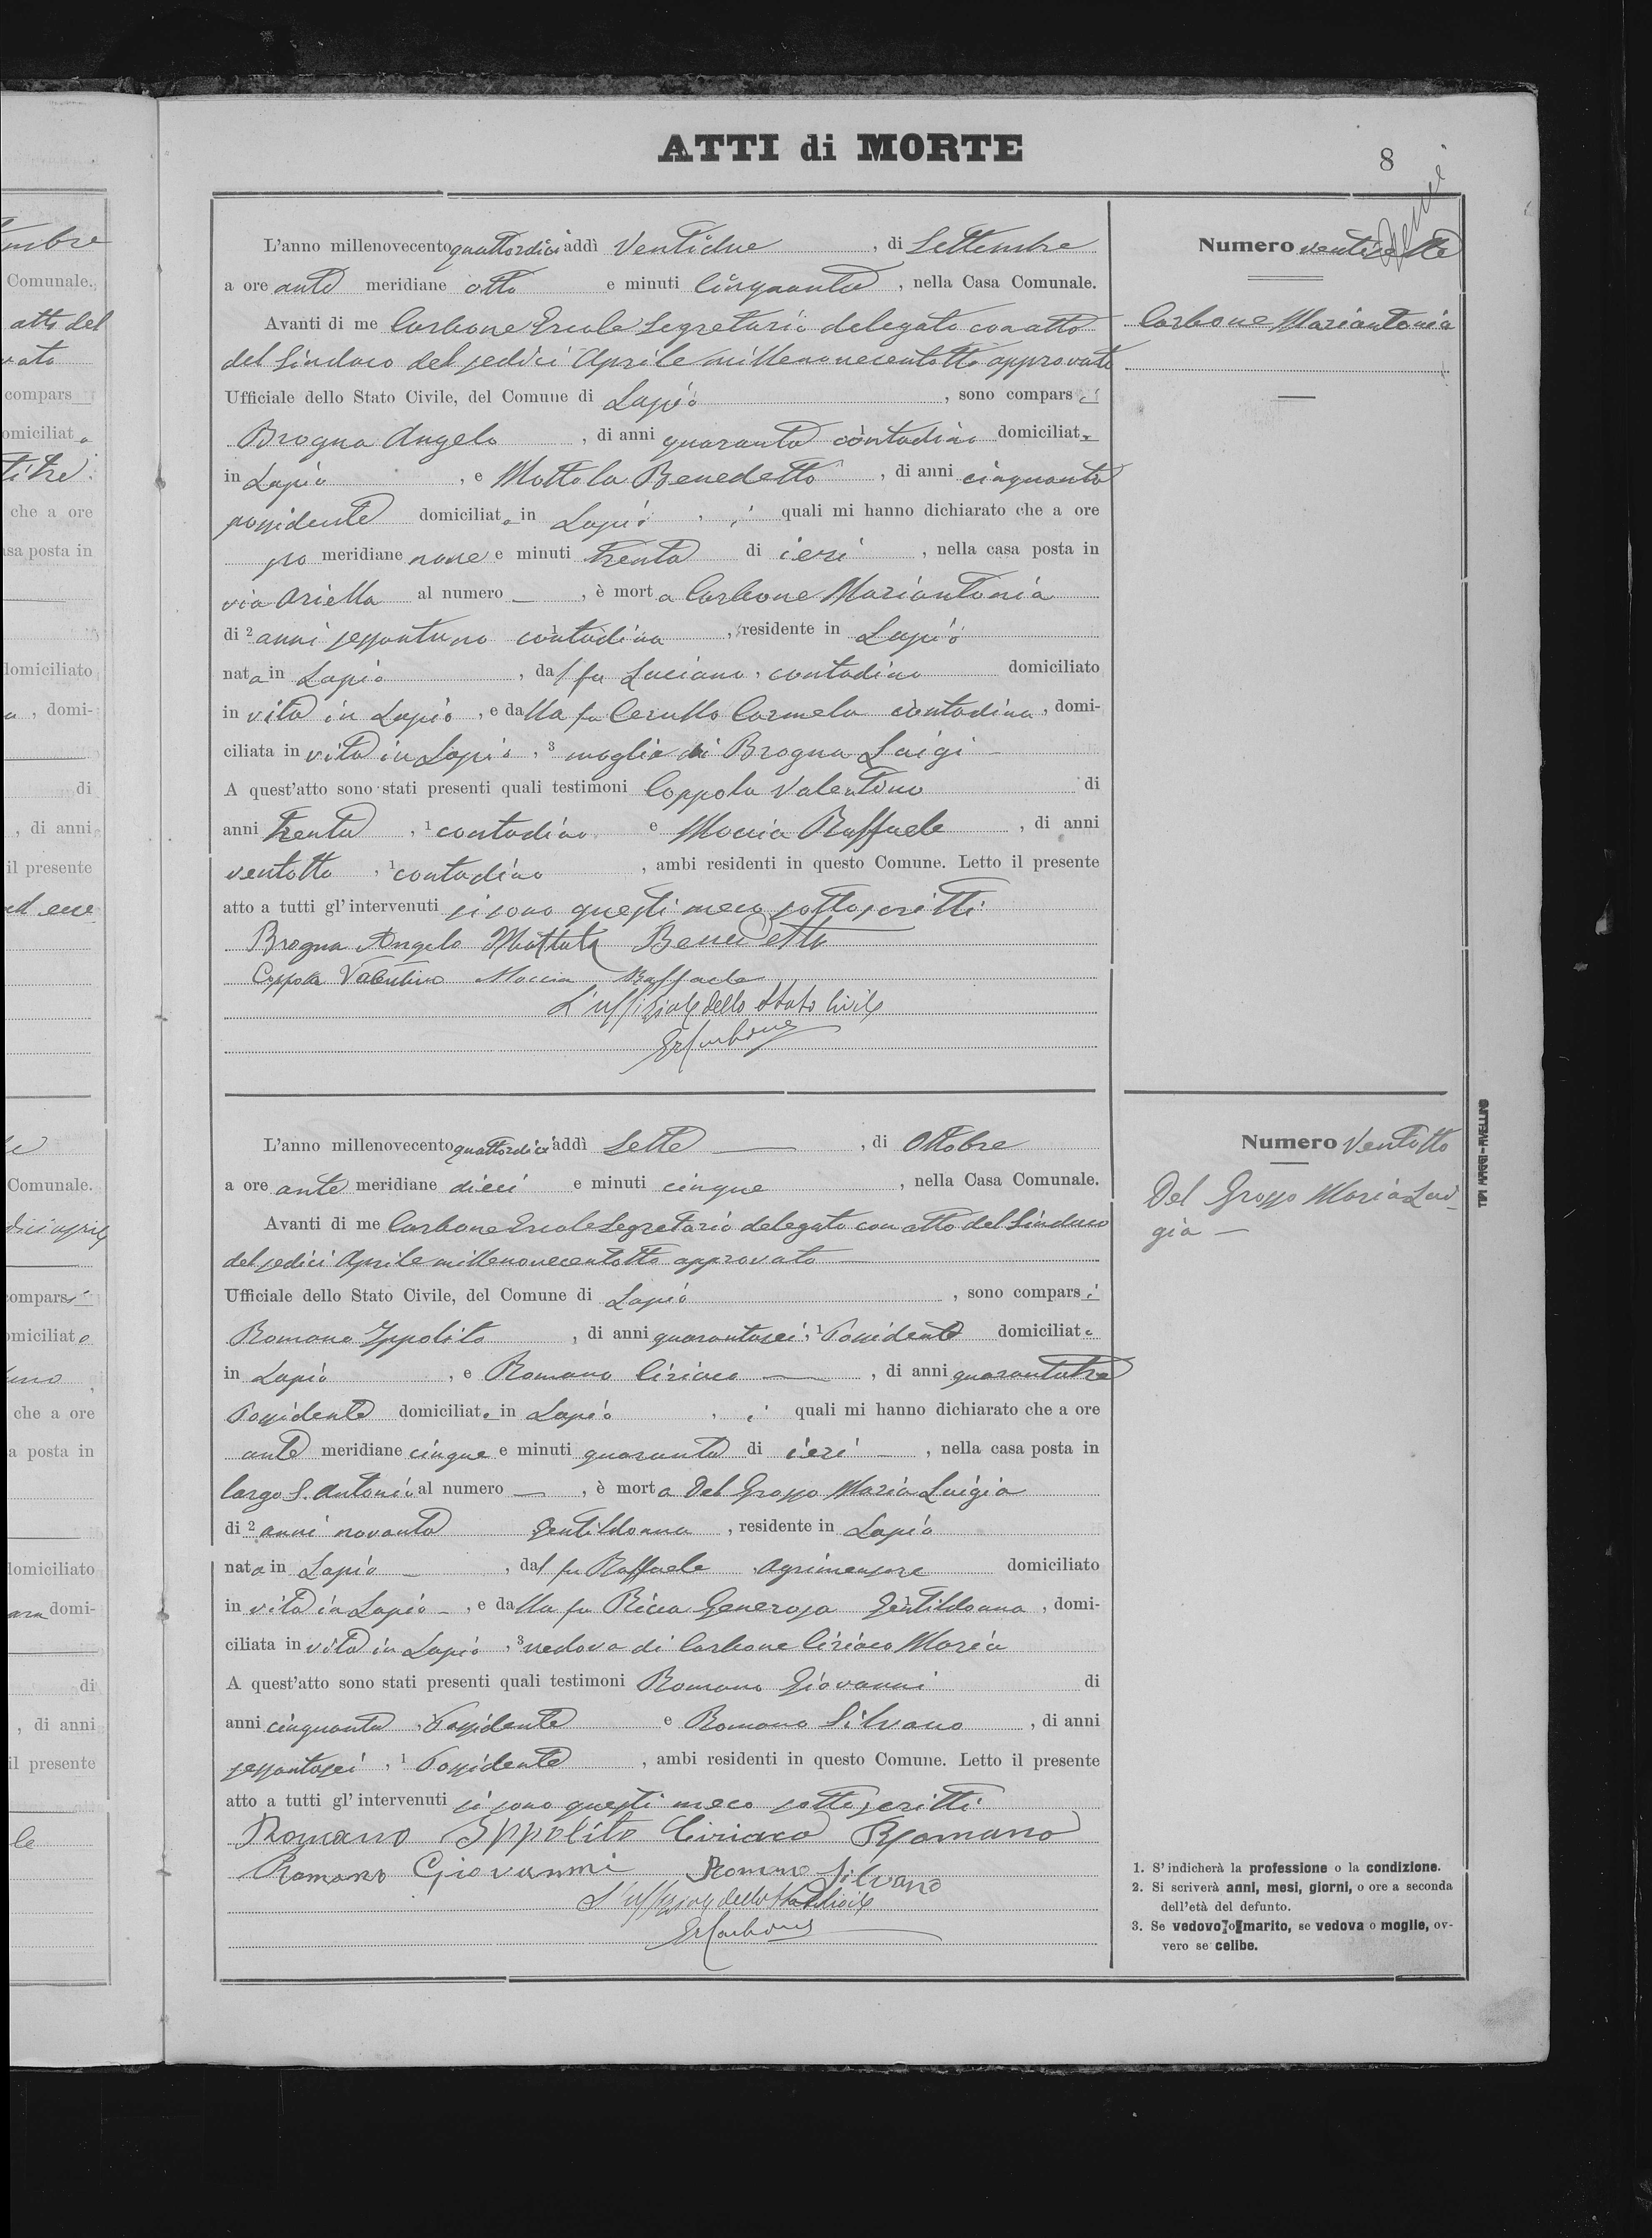 ATTI di MORTE
8
L'anno millenovecento quattordici addì Ventidue , di Settembre
a ore ante meridiane otto e minuti Cinquanta , nella Casa Comunale.
Avanti di me Carbone Ercole Segretario delegato con atto
del Sindaco del sedici Aprile millenovecentotto approvato
Ufficiale dello Stato Civile, del Comune di Lapio , sono compars i
Brogna Angelo , di anni quaranta 1 contadino domiciliato
in Lapio , e Mottola Benedetto , di anni cinquanta
possidente domiciliato in Lapio , i quali mi hanno dichiarato che a ore
po meridiane nove e minuti trenta di ieri , nella casa posta in
via Ariella al numero — , è morta Carbone Mariantonia
di 2 anni sessantuno 1 contadina , residente in Lapio
nata in Lapio , dal fu Luciano , contadino domiciliato
in vita in Lapio , e dalla fu Cerullo Carmela contadina , domi-
ciliata in vita in Lapio , 3 moglie di Brogna Luigi —
A quest'atto sono stati presenti quali testimoni Coppola Valentino di
anni trenta , 1 contadino e Moccia Raffaele , di anni
ventotto , 1 contadino , ambi residenti in questo Comune. Letto il presente
atto a tutti gl'intervenuti si sono questi meco sottoscritti.
Brogna Angelo Mottola Benedetto
Coppola Valentino Moccia Raffaele
L'uffiziale dello Stato Civile
ErCarbone
Numero ventisette
Carbone Mariantonia
—
L'anno millenovecento quattordici addì Sette — , di Ottobre
a ore ante meridiane dieci e minuti cinque , nella Casa Comunale.
Avanti di me Carbone Ercole Segretario delegato con atto del Sindaco
del sedici Aprile millenovecentotto approvato —
Ufficiale dello Stato Civile, del Comune di Lapio , sono compars i
Romano Ippolito , di anni quarantasei , 1 Possidente domiciliato
in Lapio , e Romano Ciriaco — , di anni quarantatre
Possidente domiciliato in Lapio , i quali mi hanno dichiarato che a ore
ante meridiane cinque e minuti quaranta di ieri — , nella casa posta in
largo S. Antonio al numero — , è morta Del Grosso Maria Luigia
di 2 anni novanta Gentildonna , residente in Lapio
nata in Lapio — , dal fu Raffaele , Agrimensore domiciliato
in vita in Lapio — , e dalla fu Ricca Generosa Gentildonna , domi-
ciliata in vita in Lapio , 3 vedova di Carbone Ciriaco Maria
A quest'atto sono stati presenti quali testimoni Romano Giovanni di
anni cinquanta , Possidente e Romano Silvano , di anni
sessantasei , 1 Possidente , ambi residenti in questo Comune. Letto il presente
atto a tutti gl'intervenuti si sono questi meco sottoscritti.
Romano Ippolito Ciriaco Romano
Romano Giovanni Romano Silvano
L'uffiziale dello Stato Civile
ErCarbone
Numero Ventotto
Del Grosso Maria Lui-
gia —
1. S'indicherà la professione o la condizione.
2. Si scriverà anni, mesi, giorni, o ore a seconda
dell'età del defunto.
3. Se vedovo o marito, se vedova o moglie, ov-
vero se celibe.
TIPI MAGGI-AVELLINO
Comunale.
atto del
compars
il presente
che a ore
posta in
domiciliato
, domi-
di
, di anni
il presente
Comunale.
compars i
domiciliato
che a ore
a posta in
domiciliato
domi-
di
, di anni
il presente